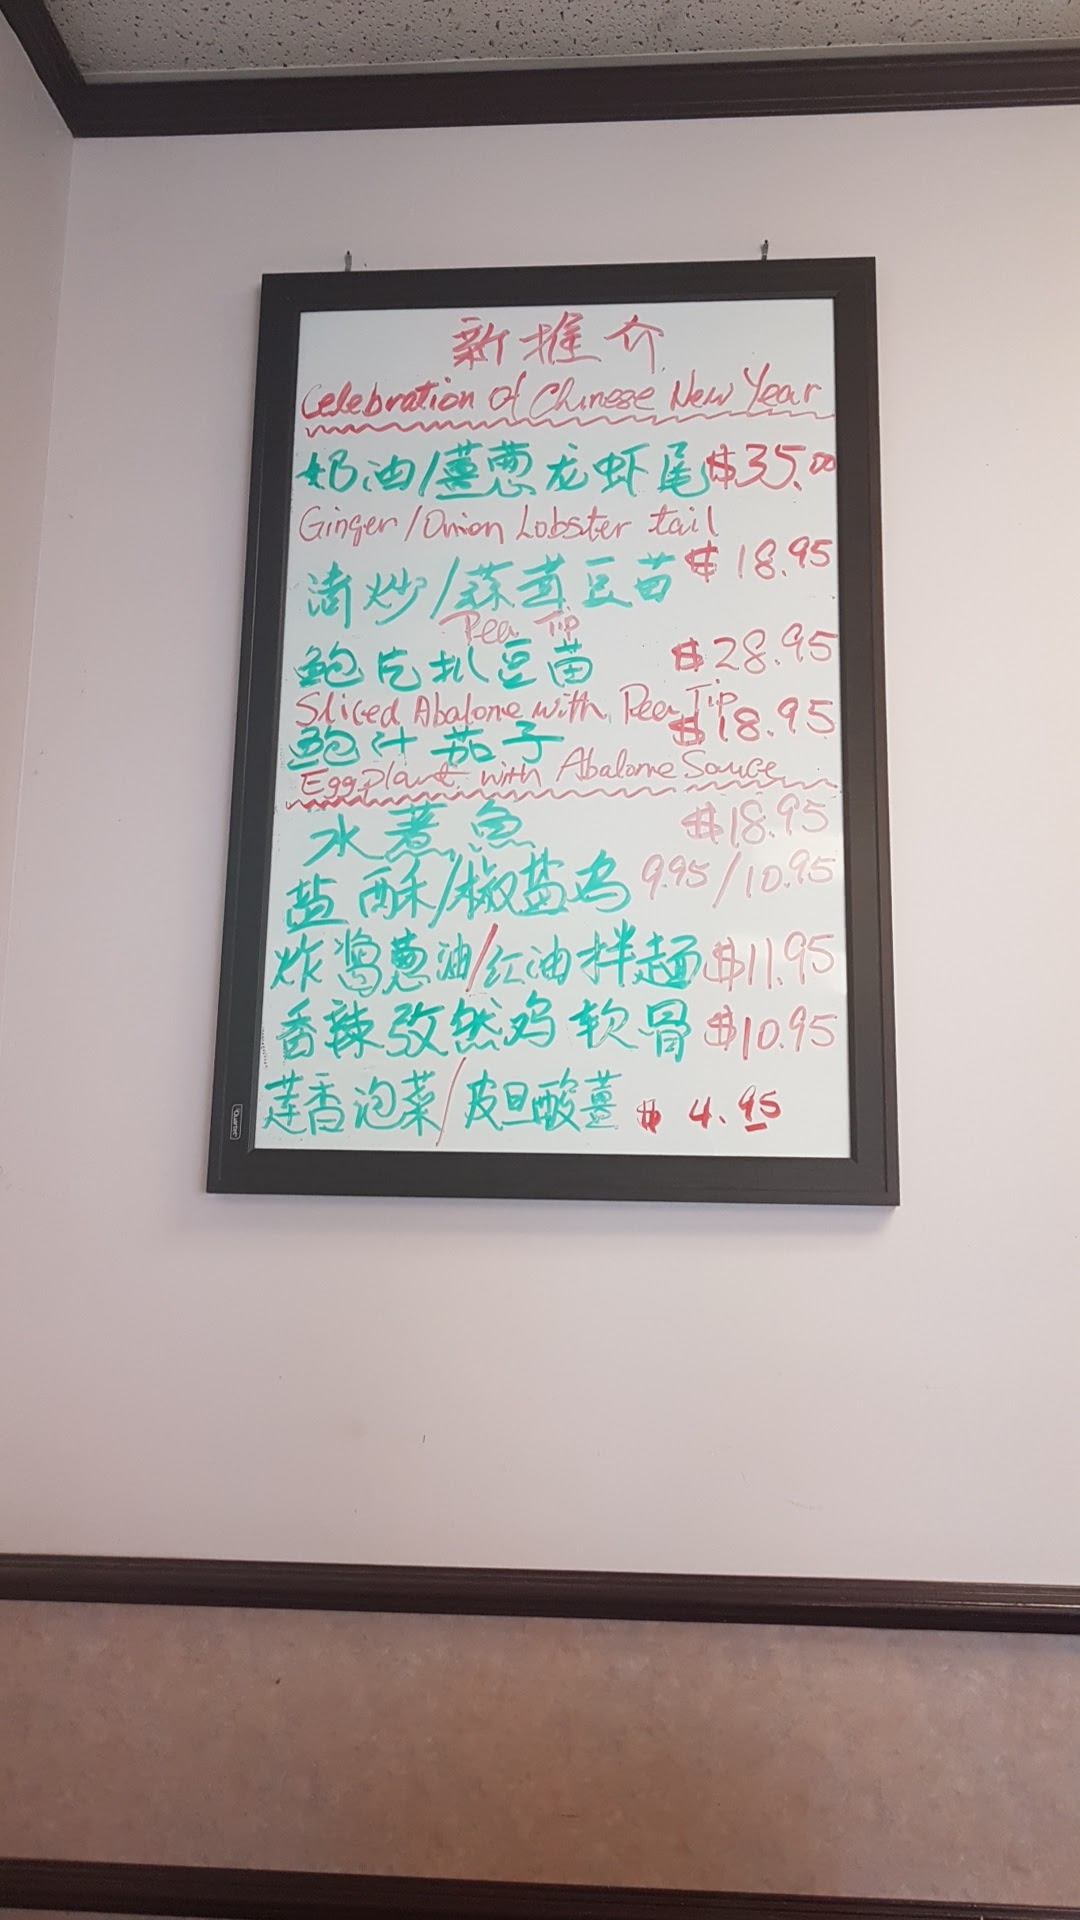 新推介
Celebration Of Chinese New Year
奶油/薑葱龙虾尾 $35.00
Ginger/Onion Lobster tail
清炒/蒜茸豆苗 $18.95
Pea Tip
鲍片扒豆苗 $28.95
Sliced Abalone with Pea Tip
鲍汁茄子 $18.95
Eggplant with Abalone Sauce
水煮魚 $18.95
盐酥/椒盐鸡 9.95/10.95
炸酱葱油/红油拌面 $11.95
香辣孜然鸡软骨 $10.95
莲香泡菜/皮旦酸薑 $4.95
Quartet